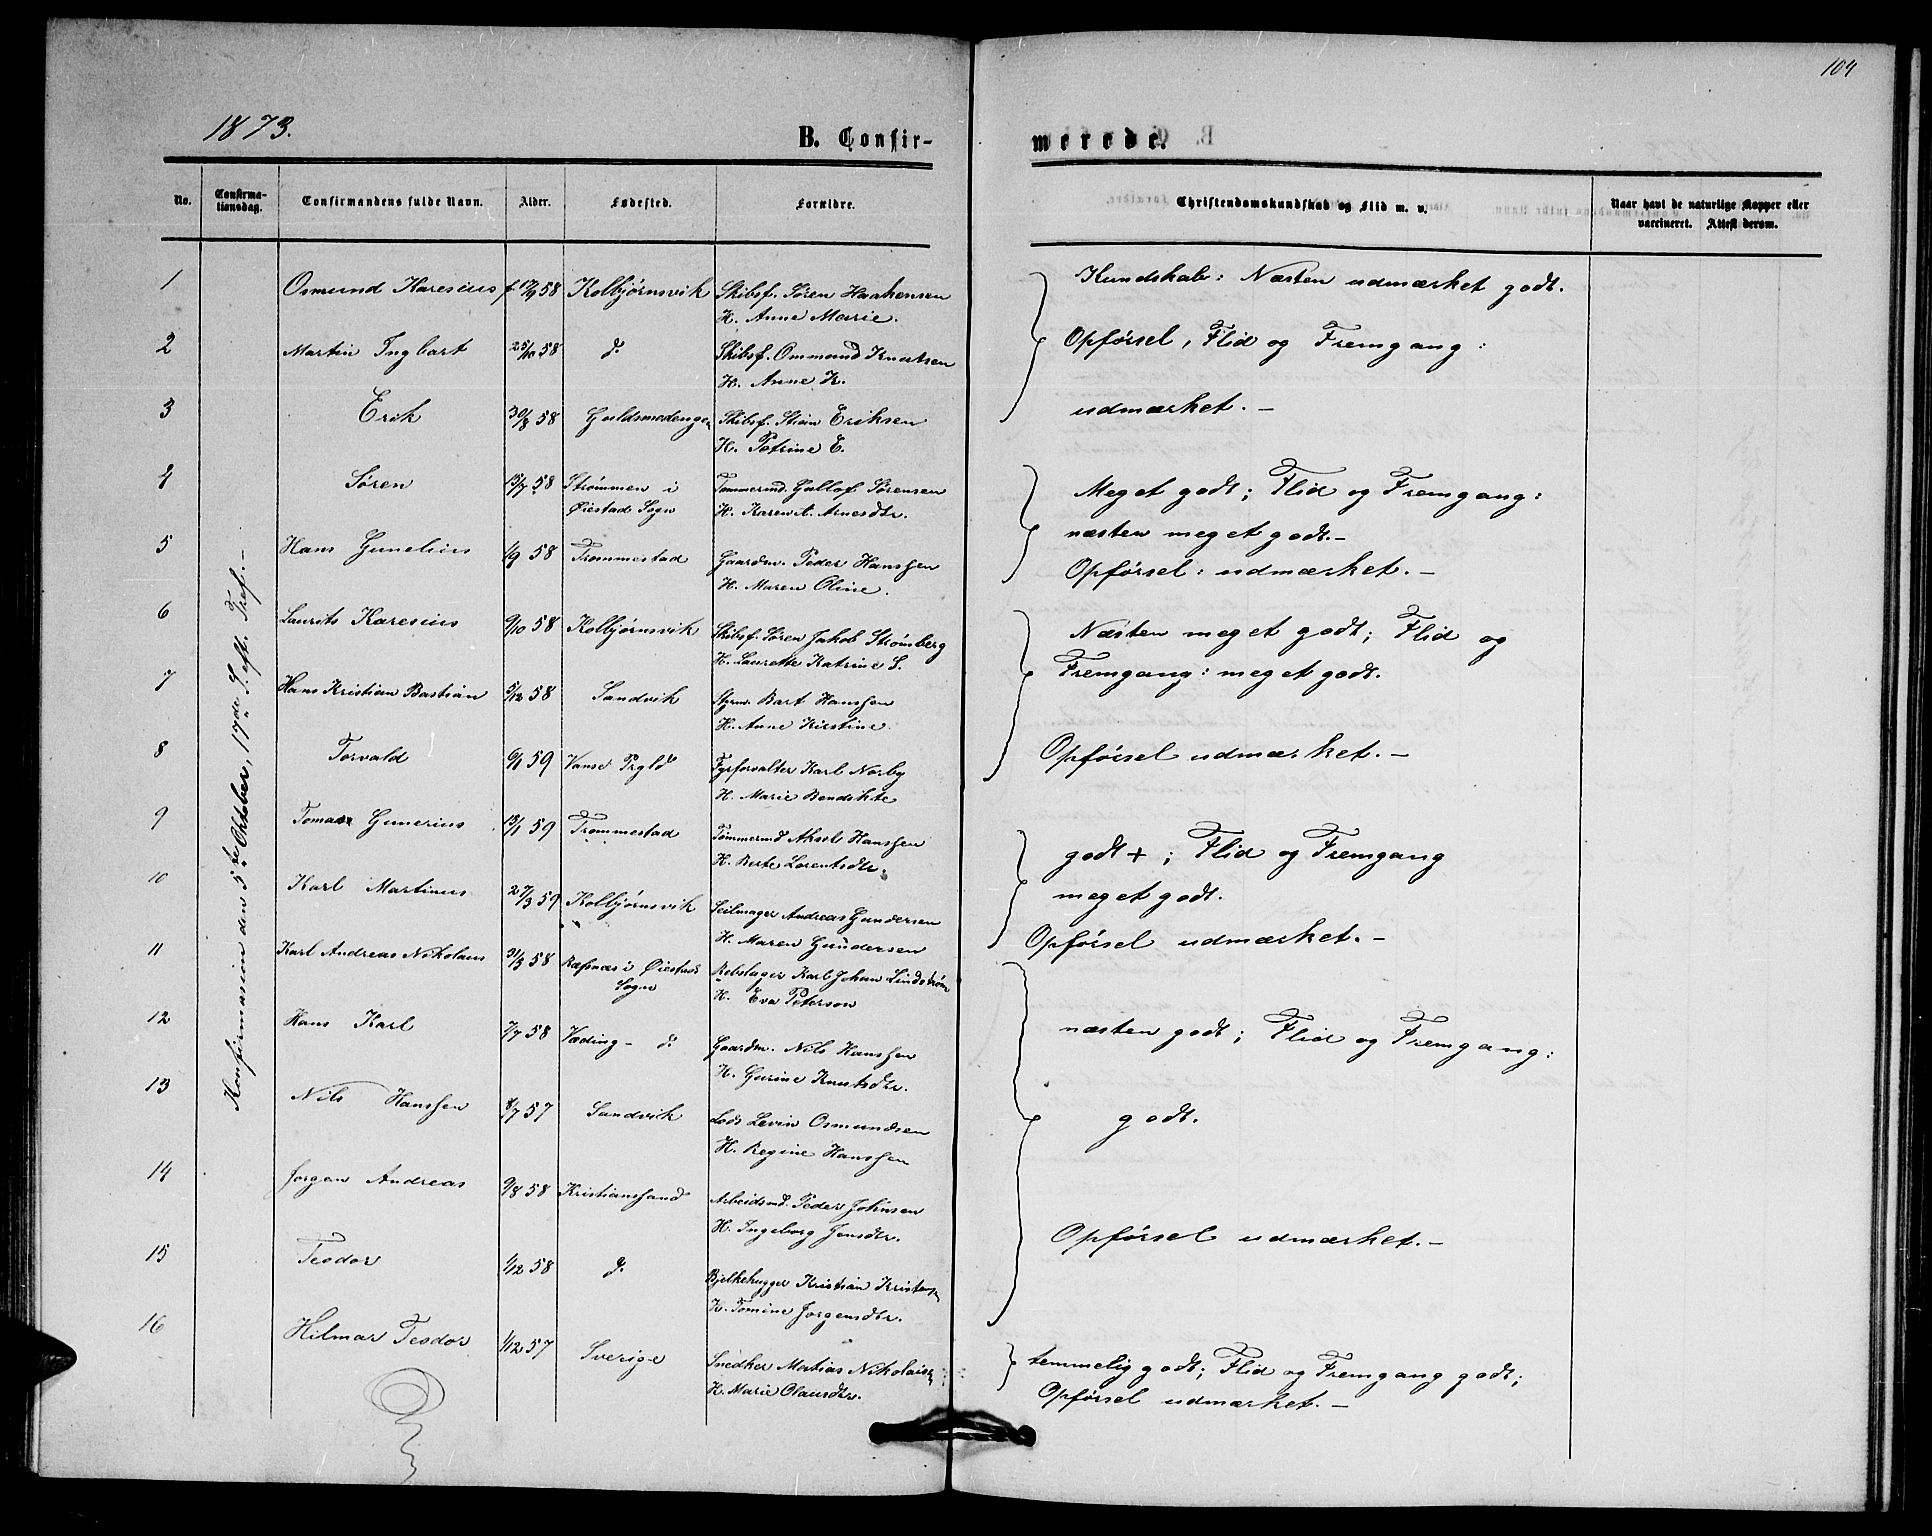 104
1873.
B. Confir-
merede.
No.
Confirma-
tionsdag.
Confirmandens fulde Navn.
Alder.
Fødested.
Forældre.
Christendomskundskab og Flid m. v.
Naar havt de naturlige Kopper eller
vaccineret. Attest derom.
Konfirmasion den 5te Oktober, 17de S. eft. Tref. -
1 Osmund Karesius f. 17/9 58 Kolbjørnsvik Skibsf. Søren Haakensen
H. Anne Marie.
2 Martin Ingbart 25/10 58 do Skibsf. Ommund Knutsen
H. Anne K.
3 Erik 30/8 58 Guldsmedengen Skibsf. Stian Eriksen
H. Petrine E.
4 Søren 13/7 58 Strømmen i Tømmermd. Gullof Sørensen
Øiestad Sogn H. Karen A. Arnesdtr.
5 Hans Gunelius 1/9 58 Trommestad Gaardm. Peder Hanssen
H. Maren Oline.
6 Laurits Karesius 9/10 58 Kolbjørnsvik Skibsf. Søren Jakob Strømberg
H. Laurette Katrine S.
7 Hans Kristian Bastian 5/12 58 Sandvik Styrm. Bart Hanssen
H. Anne Kirstine.
8 Torvald 6/1 59 Vanse Prgld Fyrforvalter Karl Norby
H. Marie Bendikte
9 Tomas Gunerius 13/1 59 Trommestad Tømmermd Aksel Hanssen
H. Berte Lorentsdtr.
10 Karl Martinus 27/3 59 Kolbjørnsvik Seilmager Andreas Gundersen
H. Maren Gundersen
11 Karl Andreas Nikolaus 31/3 58 Ræsnæs i Øiestad Rebslager Karl Johan Lindstrøm
Sogn H. Eva Peterson
12 Hans Karl 7/7 58 Væding - do Gaardm. Nils Hanssen
H. Gurine Knutsdtr.
13 Nils Hanssen 8/7 57 Sandvik Lods Levin Osmundsen
H. Regine Hanssen
14 Jørgen Andreas 9/8 58 Kristianssand Arbeidsmd. Peder Johnsen
H. Ingeborg Jensdtr.
15 Teodor 1/12 58 do Bjelkehugger Kristian Kristensen
H. Tomine Jørgensdtr.
16 Hilmar Teodor 1/12 57 Sverige Snedker Matias Nikolaisen
H. Marie Olausdtr.
Kundskab: Næsten udmærket godt.
Opførsel, Flid og Fremgang:
udmærket. -
Meget godt; Flid og Fremgang:
næsten meget godt. -
Opførsel: udmærket. -
Næsten meget godt; Flid og
Fremgang: meget godt.
Opførsel udmærket. -
godt +; Flid og Fremgang
meget godt.
Opførsel udmærket. -
næsten godt; Flid og Fremgang:
godt.
Opførsel udmærket. -
temmelig godt; Flid og Fremgang godt;
Opførsel udmærket. -